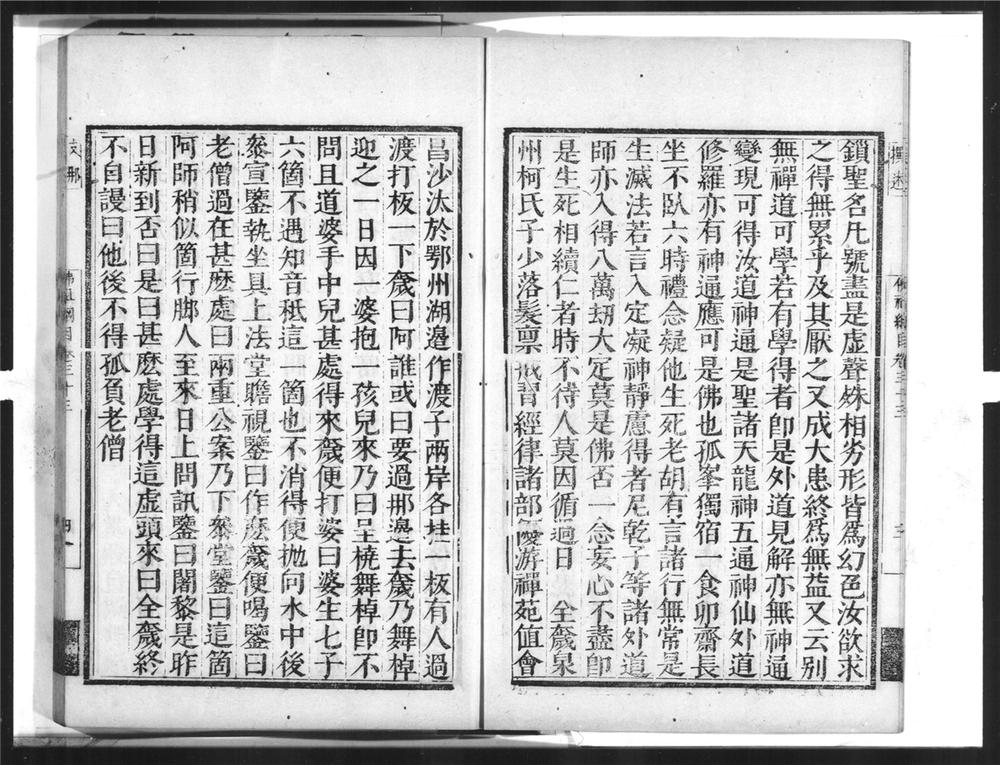 鎖聖名凡號盡是虛聲殊相劣形皆爲幻色汝欲求
之得無累乎及其厭之又成大患終爲無益又云別
無禪道可學若有學得者卽是外道見解亦無神通
變現可得汝道神通是聖諸天龍神五通神仙外道
修羅亦有神通應可是佛也孤峯獨宿一食卯齋長
坐不臥六時禮念疑他生死老胡有言諸行無常是
生滅法若言入定凝神靜慮得者尼乾子等諸外道
師亦入得八萬劫大定莫是佛否一念妄心不盡卽
是生死相續仁者時不待人莫因循過日　全奯泉
州柯氏子少落髮稟戒習經律諸部優游禪苑値會
昌沙汰於鄂州湖邊作渡子兩岸各挂一板有人過
渡打板一下奯曰阿誰或曰要過那邊去奯乃舞棹
迎之一日因一婆抱一孩兒來乃曰呈橈舞棹卽不
問且道婆手中兒甚處得來奯便打婆曰婆生七子
六箇不遇知音秪這一箇也不消得便抛向水中後
叅宣鑒執坐具上法堂瞻視鑒曰作麽奯便喝鑒曰
老僧過在甚麽處曰兩重公案乃下叅堂鑒曰這箇
阿師稍似箇行脚人至來日上問訊鑒曰闍黎是昨
日新到否曰是曰甚麽處學得這虛頭來曰全奯終
不自謾曰他後不得孤負老僧
支那
佛祖綱目卷三十三
四
撰述
佛祖綱目卷三十三
三